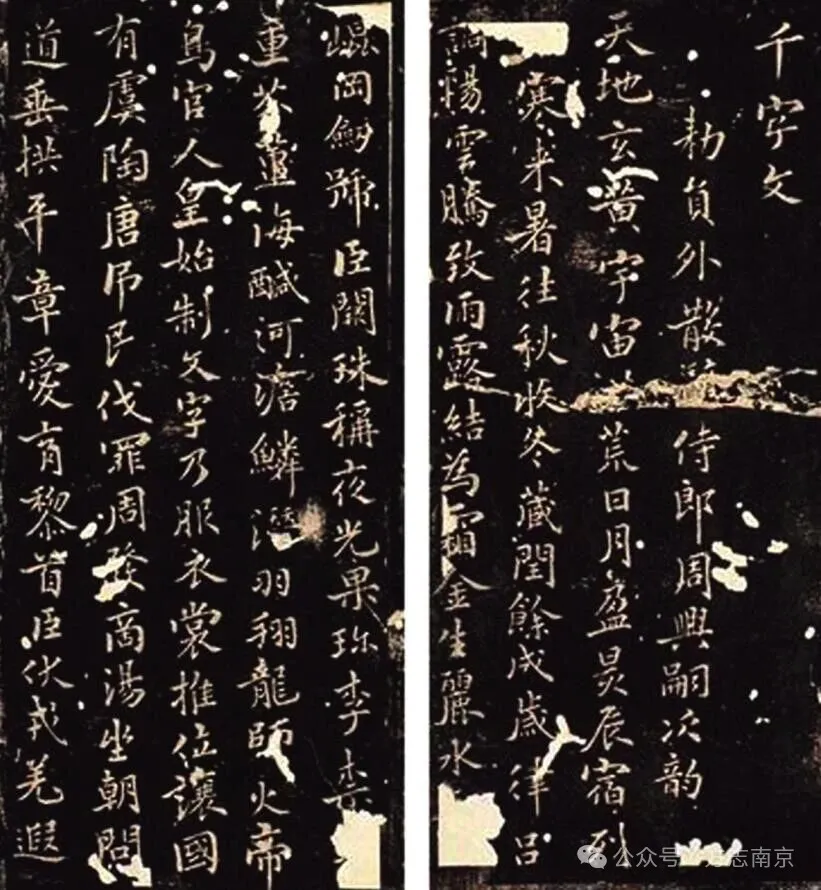 千字文
勅員外散侍郎周興嗣次韵
天地玄黃宇宙荒日月盈昃辰宿列
寒来暑往秋收冬藏閏餘成歲律呂
調陽雲騰致雨露結為霜金生麗水
崐岡劒號巨闕珠稱夜光菓珍李柰
重芥薑海醎河淡鱗潛羽翔龍師火帝
鳥官人皇始制文字乃服衣裳推位讓國
有虞陶唐吊民伐罪周發商湯坐朝問
道垂拱平章愛育黎首臣伏戎羌遐
公众号·方志南京